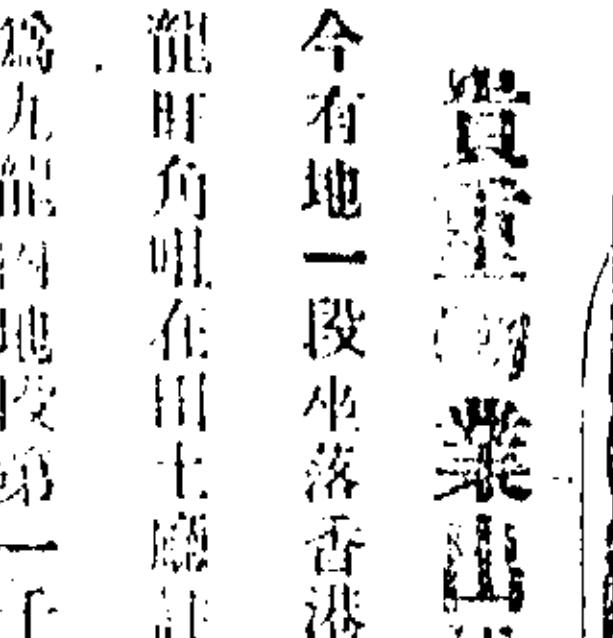 貴重物業出
今有地一段坐落香港
龍旺角咀在田土廳註
爲九龍內地段第一千